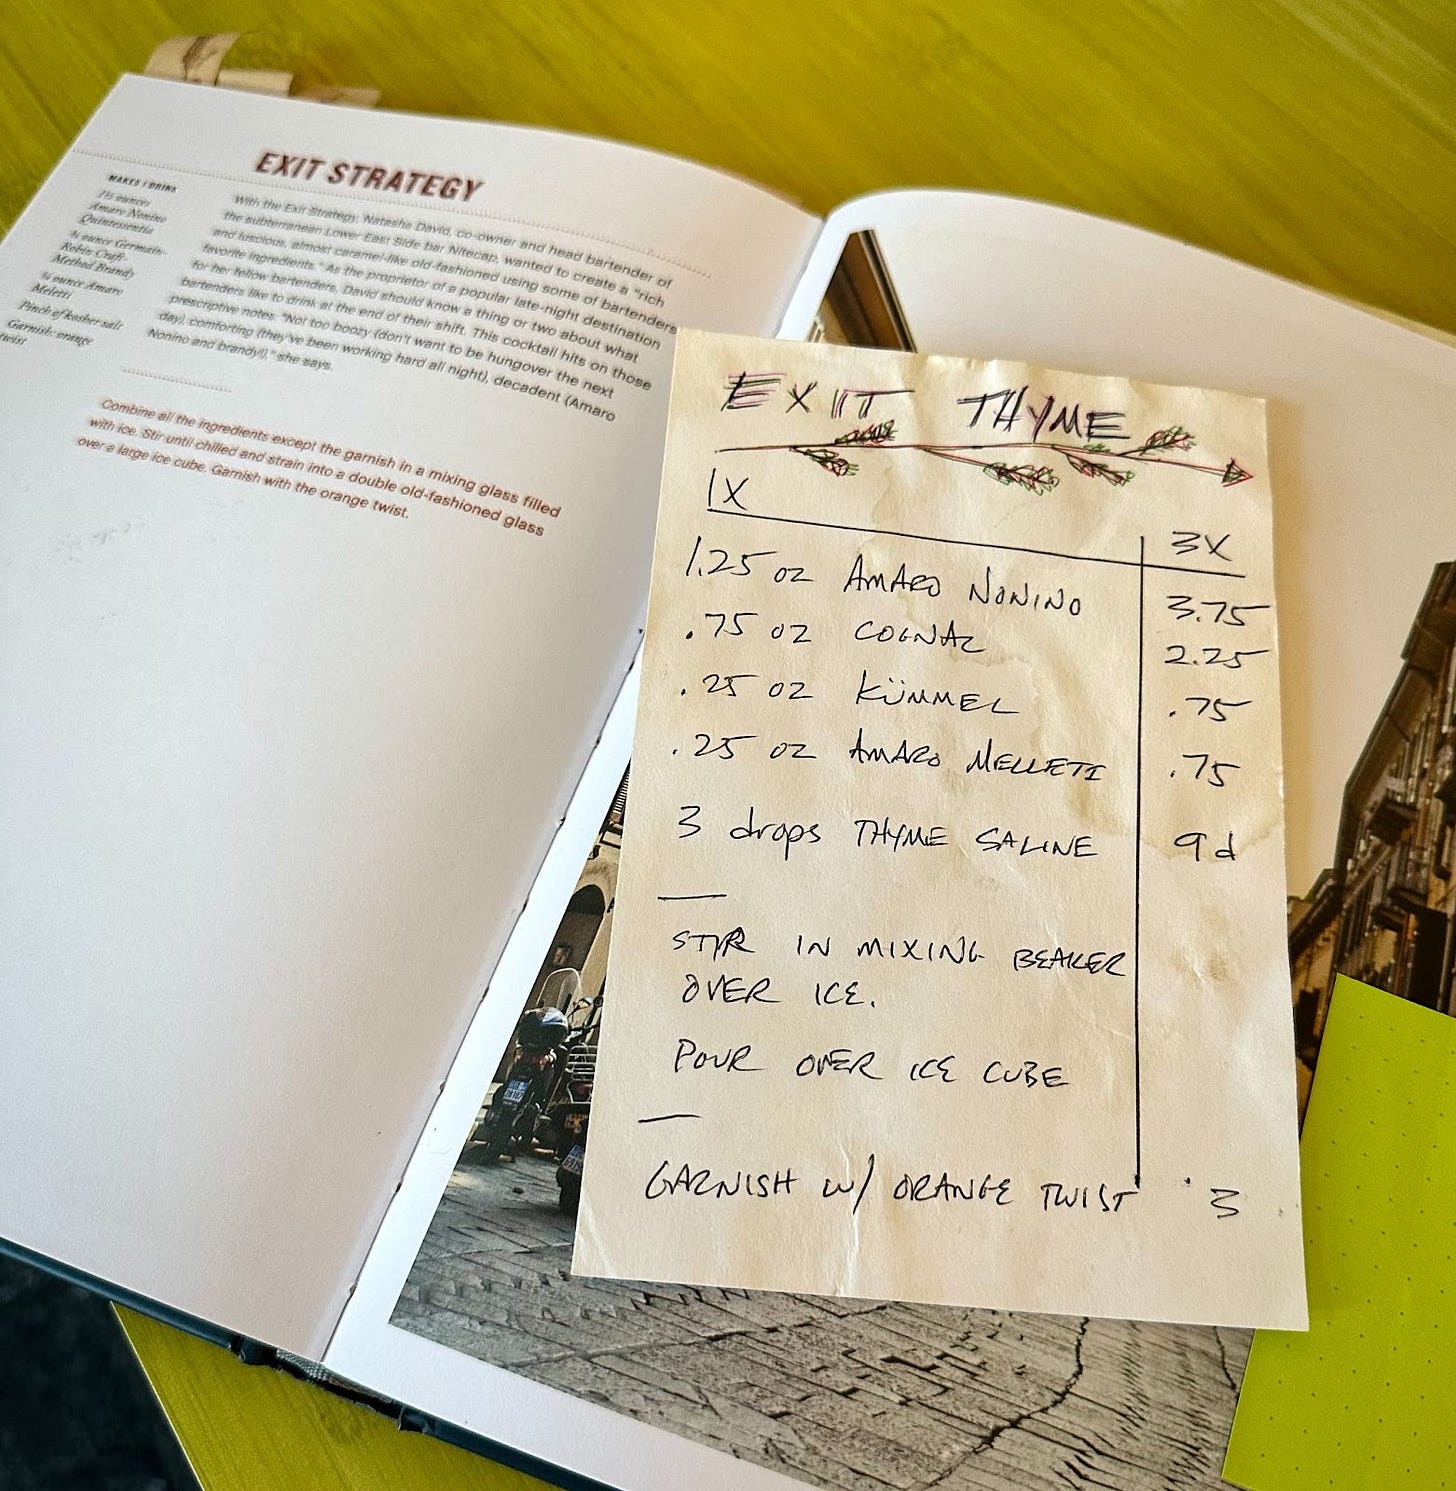 EXIT STRATEGY
MAKES 1 DRINK
1½ ounces
Amaro Nonino
Quintessentia
¾ ounce Germain-
Robin Craft-
Method Brandy
¼ ounce Amaro
Meletti
Pinch of kosher salt
Garnish: orange
twist
With the Exit Strategy, Natasha David, co-owner and head bartender of
the subterranean Lower East Side bar Nitecap, wanted to create a "rich
and luscious, almost caramel-like old-fashioned using some of bartenders'
favorite ingredients." As the proprietor of a popular late-night destination
for her fellow bartenders, David should know a thing or two about what
bartenders like to drink at the end of their shift. This cocktail hits on those
prescriptive notes: "Not too boozy (don't want to be hungover the next
day), comforting (they've been working hard all night), decadent (Amaro
Nonino and brandy!)," she says.
Combine all the ingredients except the garnish in a mixing glass filled
with ice. Stir until chilled and strain into a double old-fashioned glass
over a large ice cube. Garnish with the orange twist.
EXIT THYME
1X
3X
1.25 oz AMARO NONINO 3.75
.75 oz COGNAC 2.25
.25 oz KÜMMEL .75
.25 oz AMARO MELLETI .75
3 drops THYME SALINE 9d
STIR IN MIXING BEAKER
OVER ICE.
POUR OVER ICE CUBE
GARNISH W/ ORANGE TWIST 3